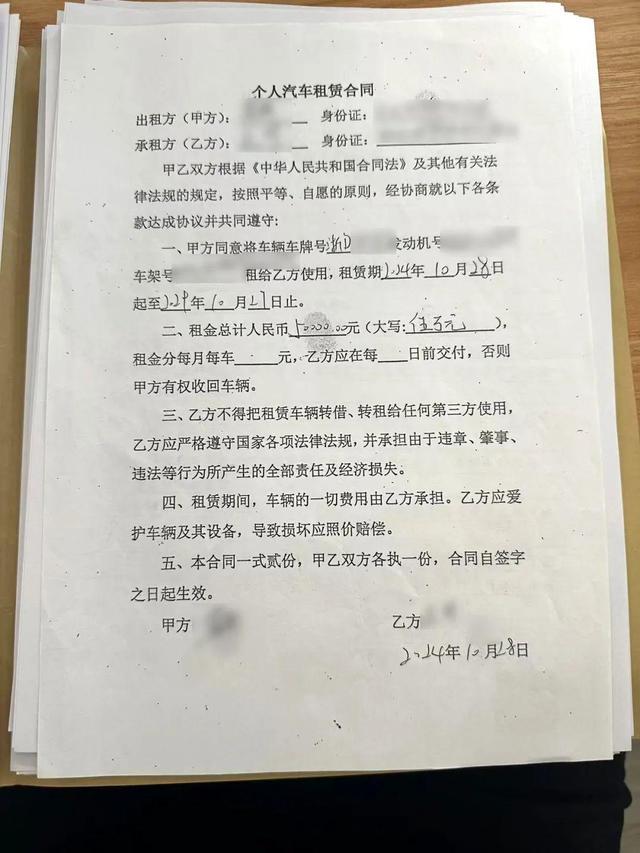 个人汽车租赁合同
出租方（甲方）： 身份证：
承租方（乙方）： 身份证：
甲乙双方根据《中华人民共和国合同法》及其他有关法
律法规的规定，按照平等、自愿的原则，经协商就以下各条
款达成协议并共同遵守：
一、甲方同意将车辆车牌号浙D 发动机号
车架号 租给乙方使用，租赁期2024年10月28日
起至2029年10月27日止。
二、租金总计人民币50000.00元（大写：伍万元），
租金分每月每车 元，乙方应在每 日前交付，否则
甲方有权收回车辆。
三、乙方不得把租赁车辆转借、转租给任何第三方使用，
乙方应严格遵守国家各项法律法规，并承担由于违章、肇事、
违法等行为所产生的全部责任及经济损失。
四、租赁期间，车辆的一切费用由乙方承担。乙方应爱
护车辆及其设备，导致损坏应照价赔偿。
五、本合同一式贰份，甲乙双方各执一份，合同自签字
之日起生效。
甲方 乙方
2024年10月28日